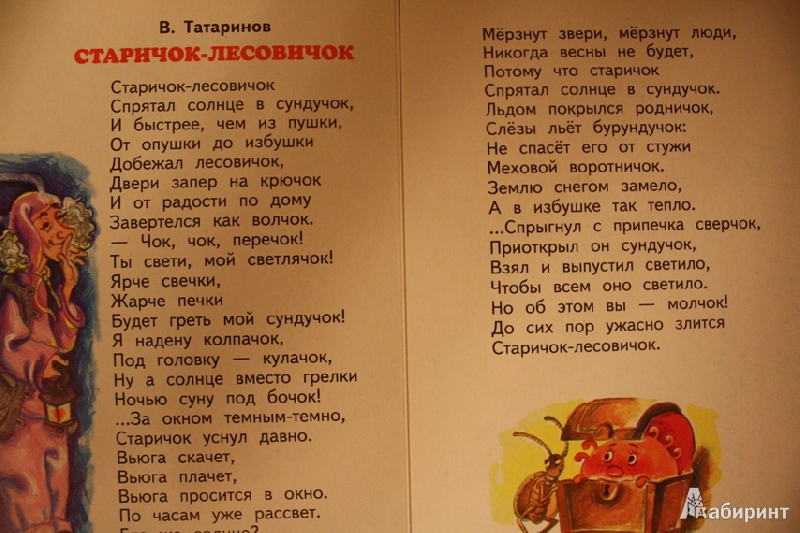 В. Татаринов
СТАРИЧОК-ЛЕСОВИЧОК
Старичок-лесовичок
Спрятал солнце в сундучок,
И быстрее, чем из пушки,
От опушки до избушки
Добежал лесовичок,
Двери запер на крючок
И от радости по дому
Завертелся как волчок.
— Чок, чок, перечок!
Ты свети, мой светлячок!
Ярче свечки,
Жарче печки
Будет греть мой сундучок!
Я надену колпачок,
Под головку — кулачок,
Ну а солнце вместо грелки
Ночью суну под бочок!
...За окном темным-темно,
Старичок уснул давно.
Вьюга скачет,
Вьюга плачет,
Вьюга просится в окно.
По часам уже рассвет.
солнце?
Мёрзнут звери, мёрзнут люди,
Никогда весны не будет,
Потому что старичок
Спрятал солнце в сундучок.
Льдом покрылся родничок,
Слёзы льёт бурундучок:
Не спасёт его от стужи
Меховой воротничок.
Землю снегом замело,
А в избушке так тепло.
...Спрыгнул с припечка сверчок,
Приоткрыл он сундучок,
Взял и выпустил светило,
Чтобы всем оно светило.
Но об этом вы — молчок!
До сих пор ужасно злится
Старичок-лесовичок.
Лабиринт